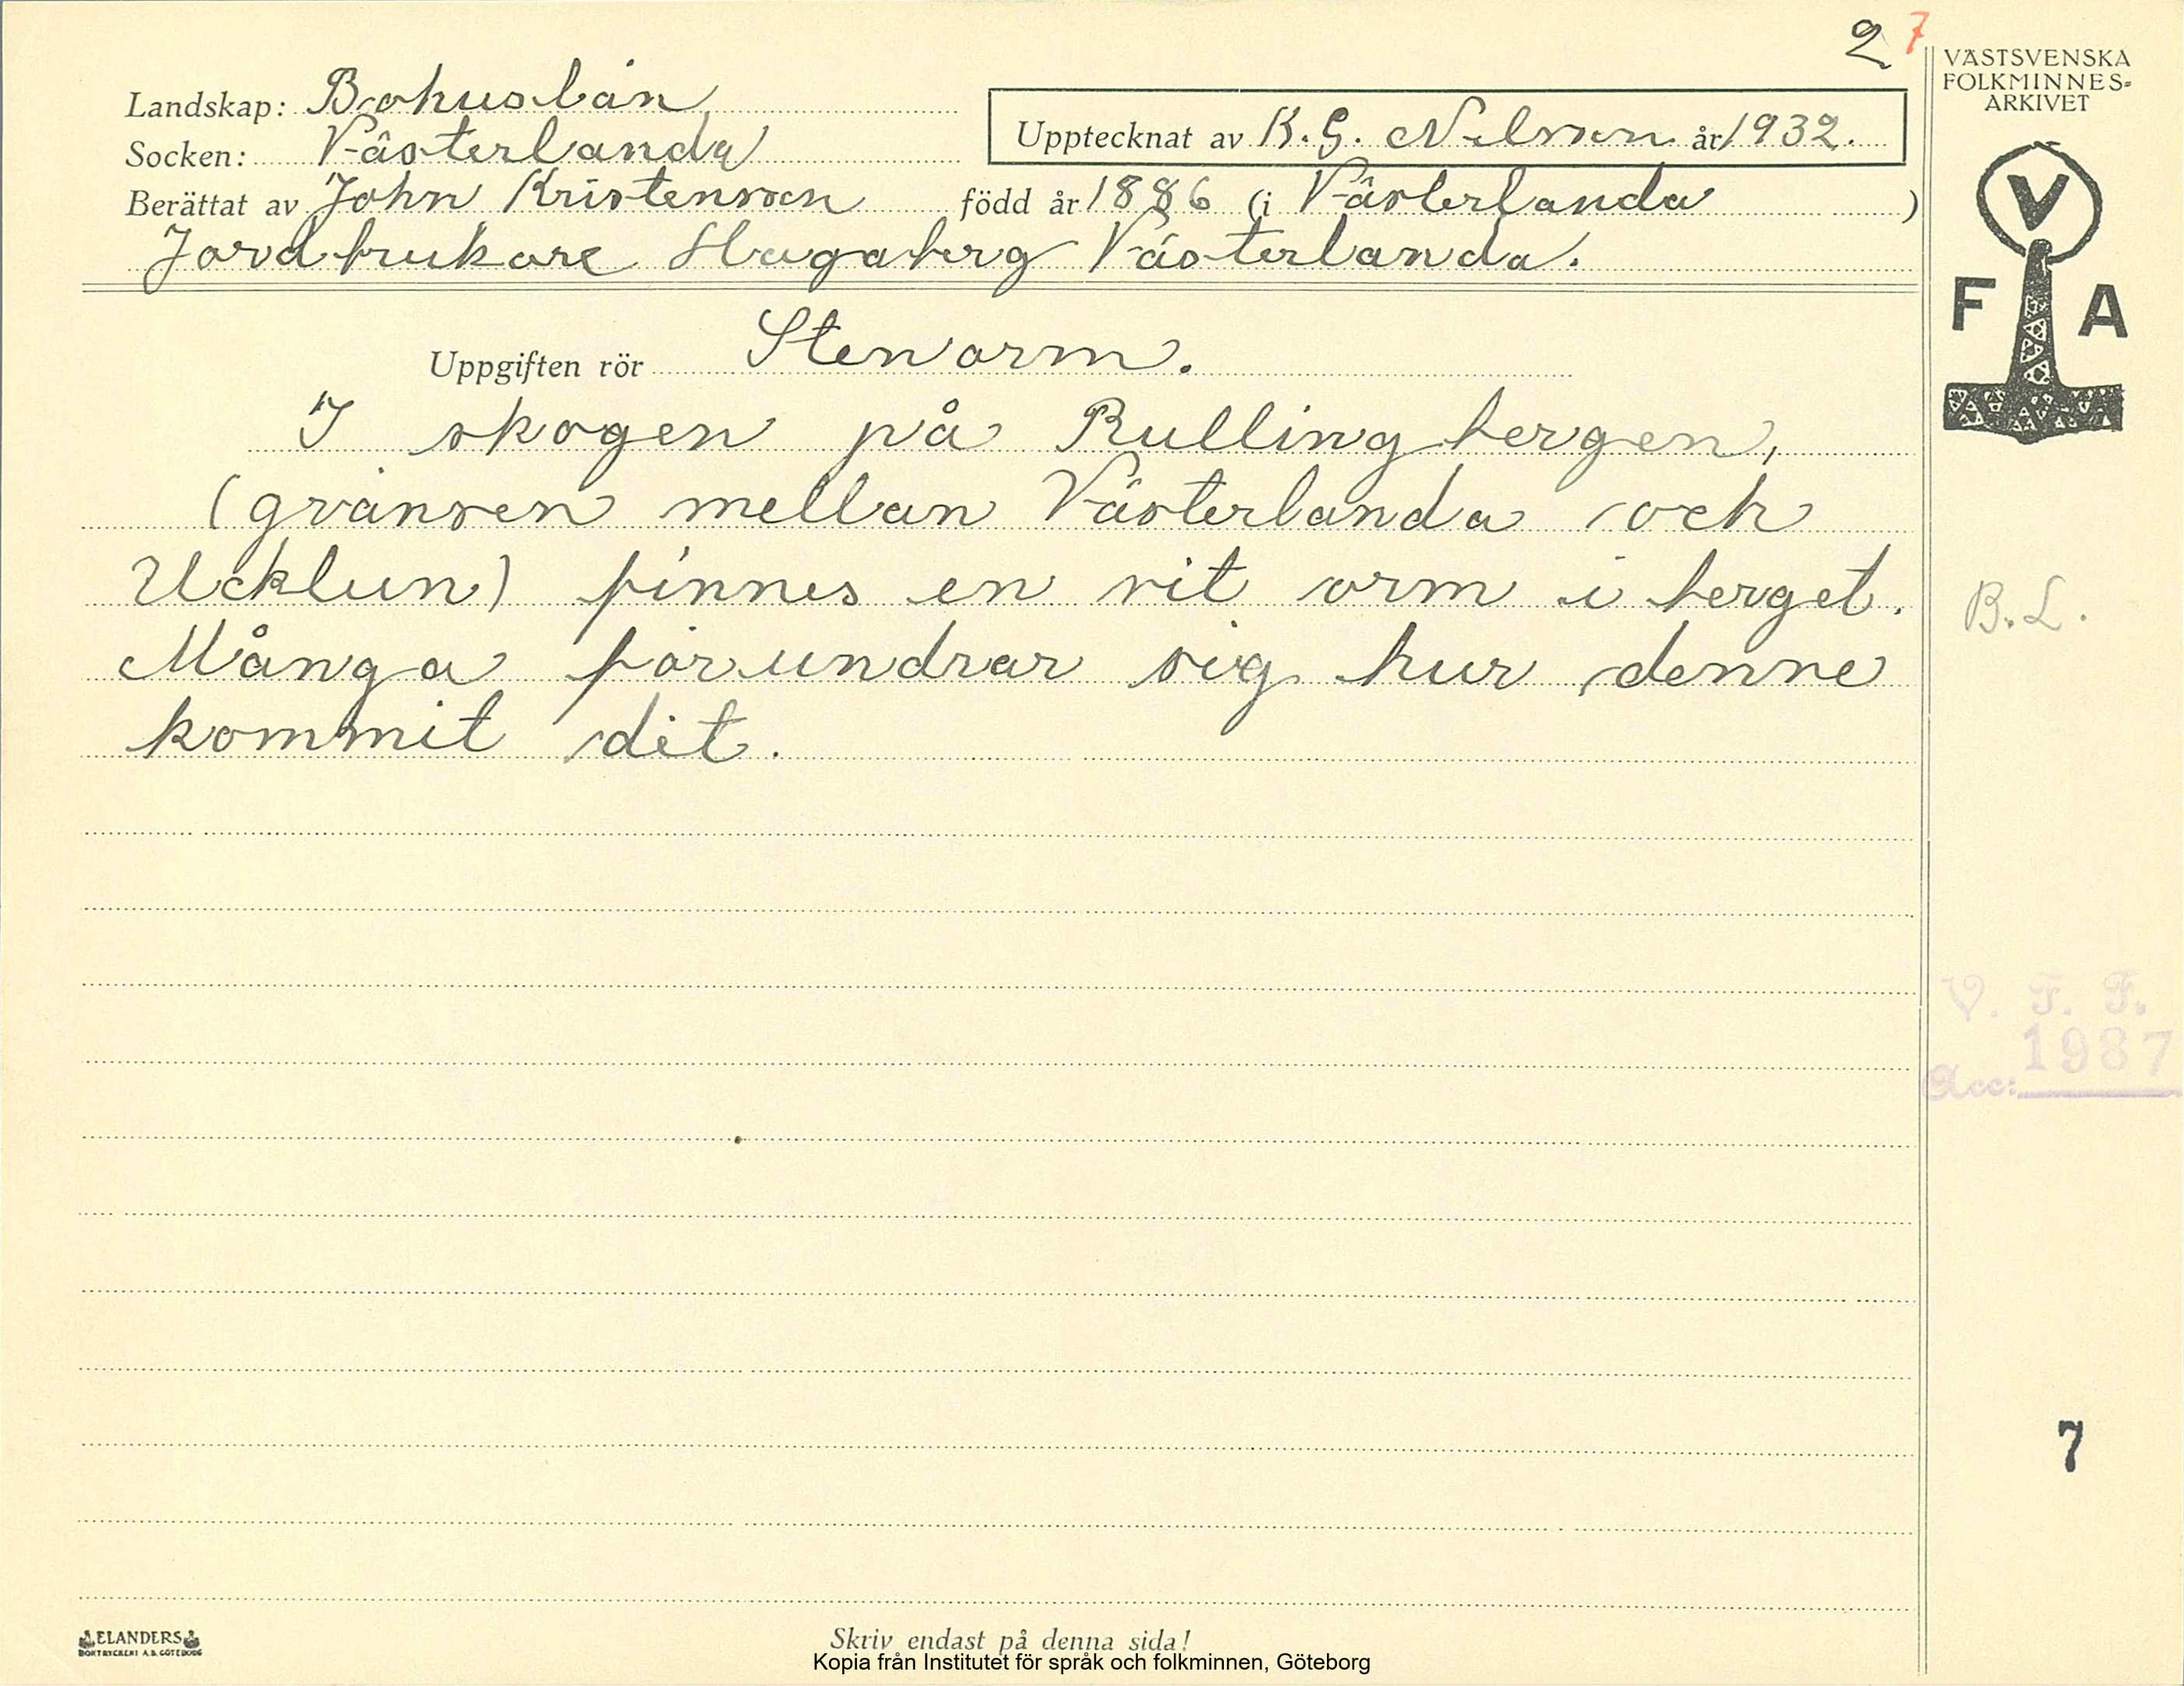 2 7
VÄSTSVENSKA
FOLKMINNES-
ARKIVET
Landskap: Bohuslän
Socken: Västerlanda
Upptecknat av K. G. Nilsson år 1932.
Berättat av John Kristensson född år 1886 (i Västerlanda )
Jordbrukare Hagaberg Västerlanda.
V
F A
Uppgiften rör Stenorm.
I skogen på Rullingbergen,
(gränsen mellan Västerlanda och
Ucklun) finnes en vit orm i berget.
B. L.
Många förundrar sig hur denne
kommit dit.
V. F. F.
Acc: 1987
7
ELANDERS
BOKTRYCKERI A.B. GÖTEBORG
Skriv endast på denna sida!
Kopia från Institutet för språk och folkminnen, Göteborg